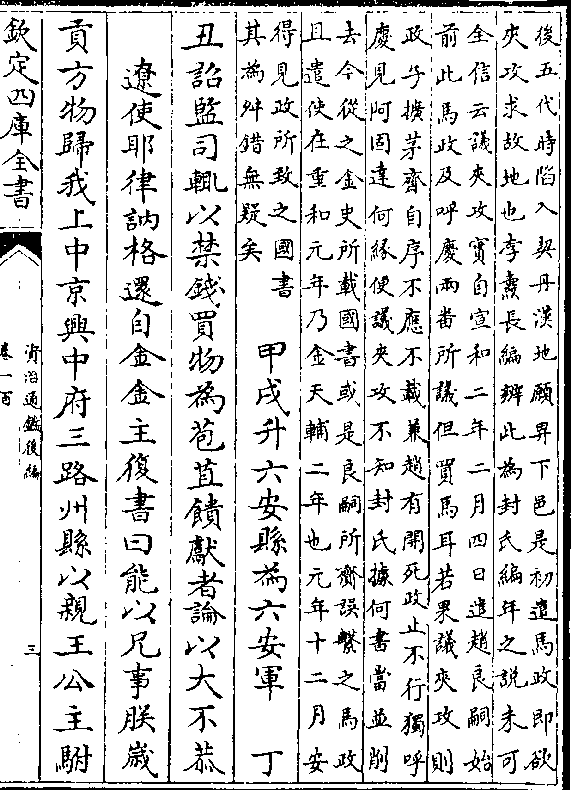 後五代時陷入契丹漢地願畀下邑是初遣馬政即欲
夾攻求故地也李燾長編辨此為封氏編年之說未可
全信云議夾攻實自宣和二年二月四日遣趙良嗣始
前此馬政及呼慶兩番所議但買馬耳若果議夾攻則
政子擴茅齋自序不應不載兼趙有開死政止不行獨呼
慶見阿固達何緣便議夾攻不知封氏據何書當並削
去今從之金史所載國書或是良嗣所齎誤繫之馬政
且遣使在重和元年乃金天輔二年也元年十二月安
得見政所致之國書
其為舛錯無疑矣
甲戌升六安縣為六安軍 丁
丑詔監司輒以禁錢買物為苞苴饋獻者論以大不恭
遼使耶律訥格還自金金主復書曰能以兄事朕歲
貢方物歸我上中京興中府三路州縣以親王公主駙
欽定四庫全書
資治通鑑後編
卷一百
三